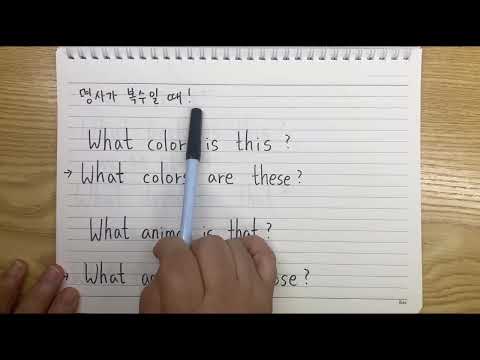 명사가 복수일 때!
What color is this?
→ What colors are these?
What is that?
→ What ?